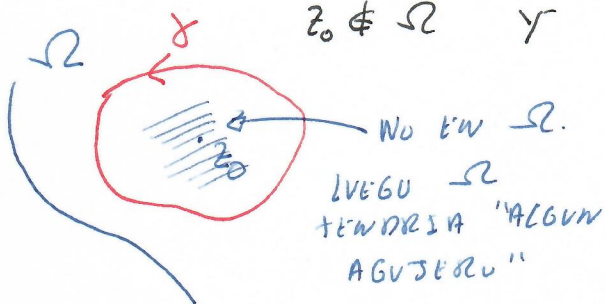 z₀ ∉ Ω y
Ω
γ
z₀
NO EN Ω.
LUEGO Ω
TENDRIA "ALGUN
AGUJERO"